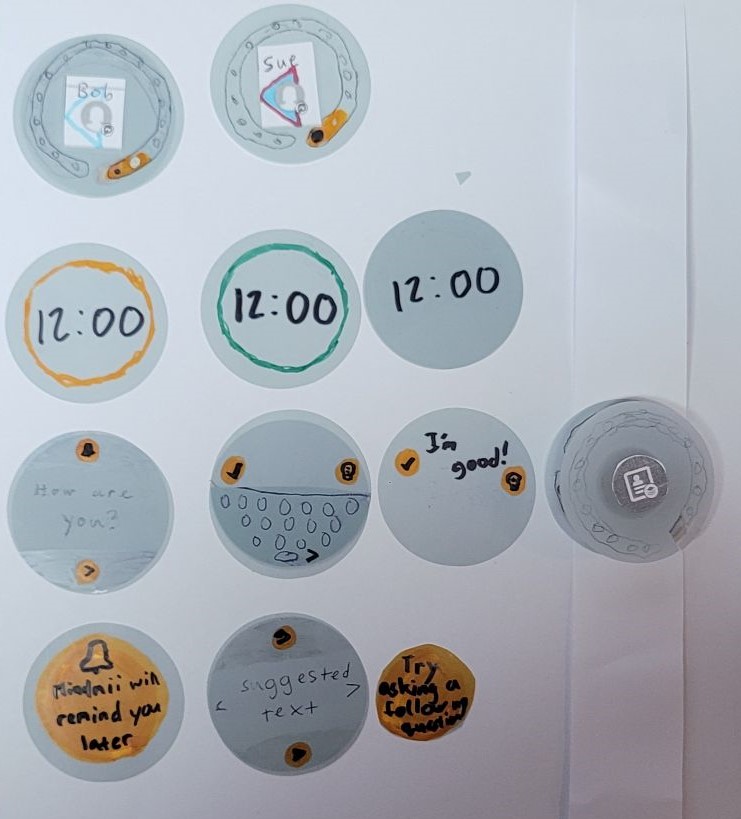 Bob
Sue
12:00
12:00
12:00
How are
you?
I'm
good!
will
remind you
later
suggested
text
Try
asking a
following
question